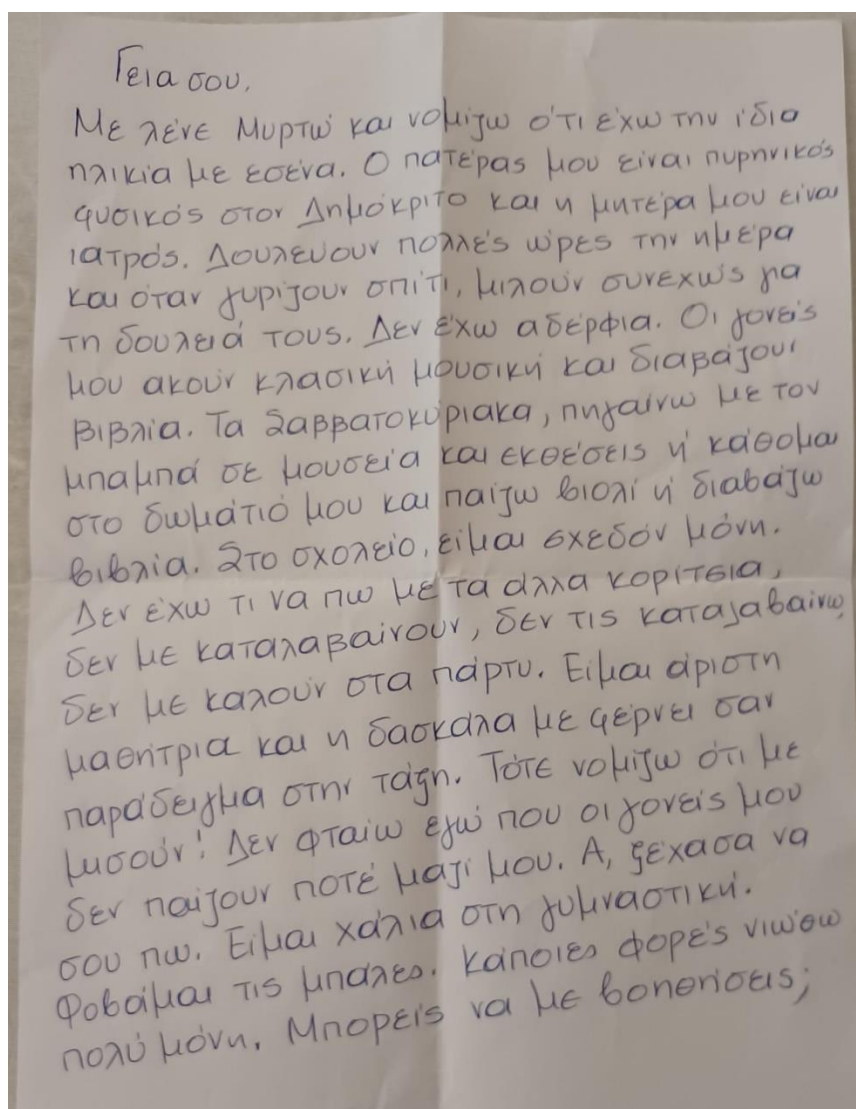 Γεια σου,
Με λένε Μυρτώ και νομίζω ότι έχω την ίδια
ηλικία με εσένα. Ο πατέρας μου είναι πυρηνικός
φυσικός στον Δημόκριτο και η μητέρα μου είναι
ιατρός. Δουλεύουν πολλές ώρες την ημέρα
και όταν γυρίζουν σπίτι, μιλούν συνεχώς για
τη δουλειά τους. Δεν έχω αδέρφια. Οι γονείς
μου ακούν κλασική μουσική και διαβάζουν
βιβλία. Τα Σαββατοκύριακα, πηγαίνω με τον
μπαμπά σε μουσεία και εκθέσεις ή κάθομαι
στο δωμάτιό μου και παίζω βιολί ή διαβάζω
βιβλία. Στο σχολείο, είμαι σχεδόν μόνη.
Δεν έχω τι να πω με τα άλλα κορίτσια,
δεν με καταλαβαίνουν, δεν τις καταλαβαίνω,
δεν με καλούν στα πάρτυ. Είμαι άριστη
μαθήτρια και η δασκάλα με φέρνει σαν
παράδειγμα στην τάξη. Τότε νομίζω ότι με
μισούν! Δεν φταίω εγώ που οι γονείς μου
δεν παίζουν ποτέ μαζί μου. Α, ξέχασα να
σου πω. Είμαι χάλια στη γυμναστική.
Φοβάμαι τις μπάλες. Κάποιες φορές νιώθω
πολύ μόνη. Μπορείς να με βοηθήσεις;